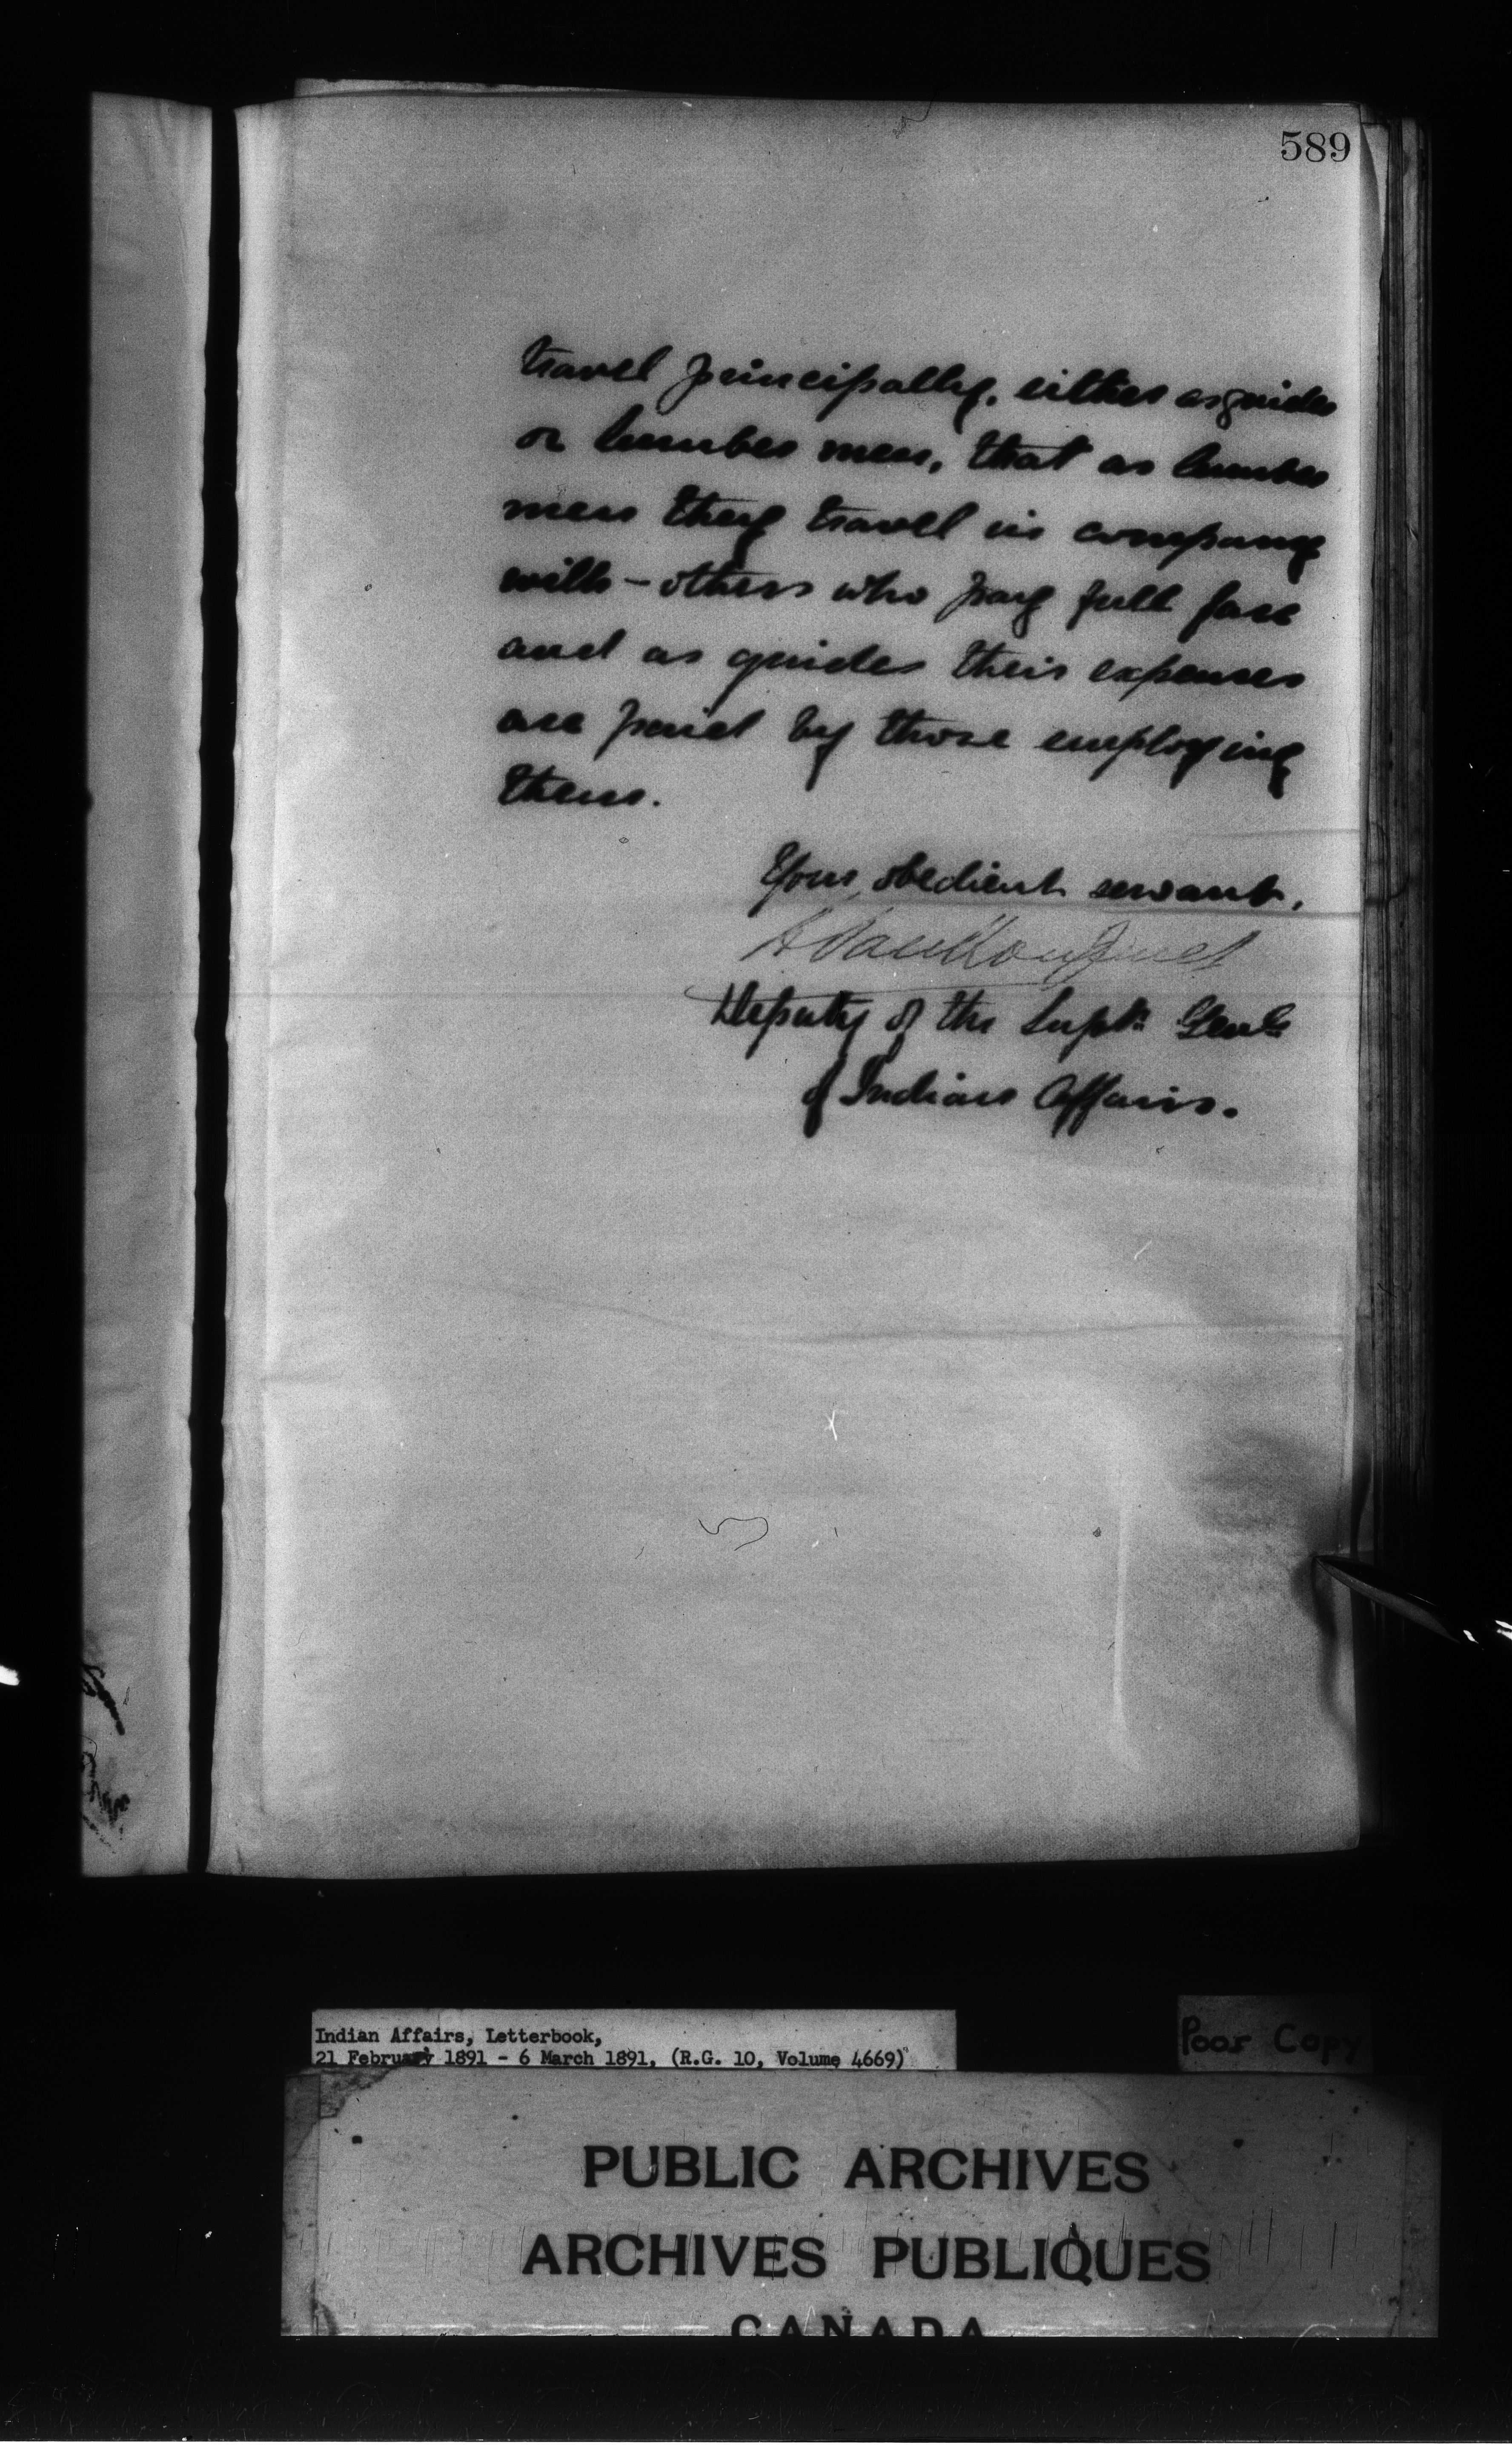 589
travel principally, either as guides
or lumber men, that as lumber
men they travel in company
with - others who pay full fare
and as guides their expenses
are paid by those employing
them.
Your obedient servant,
L Vankoughnet
Deputy of the Supt. Genl.
of Indian Affairs.
Indian Affairs, Letterbook,
21 February 1891 - 6 March 1891, (R.G. 10, Volume 4669)
Poor Copy
PUBLIC ARCHIVES
ARCHIVES PUBLIQUES
CANADA